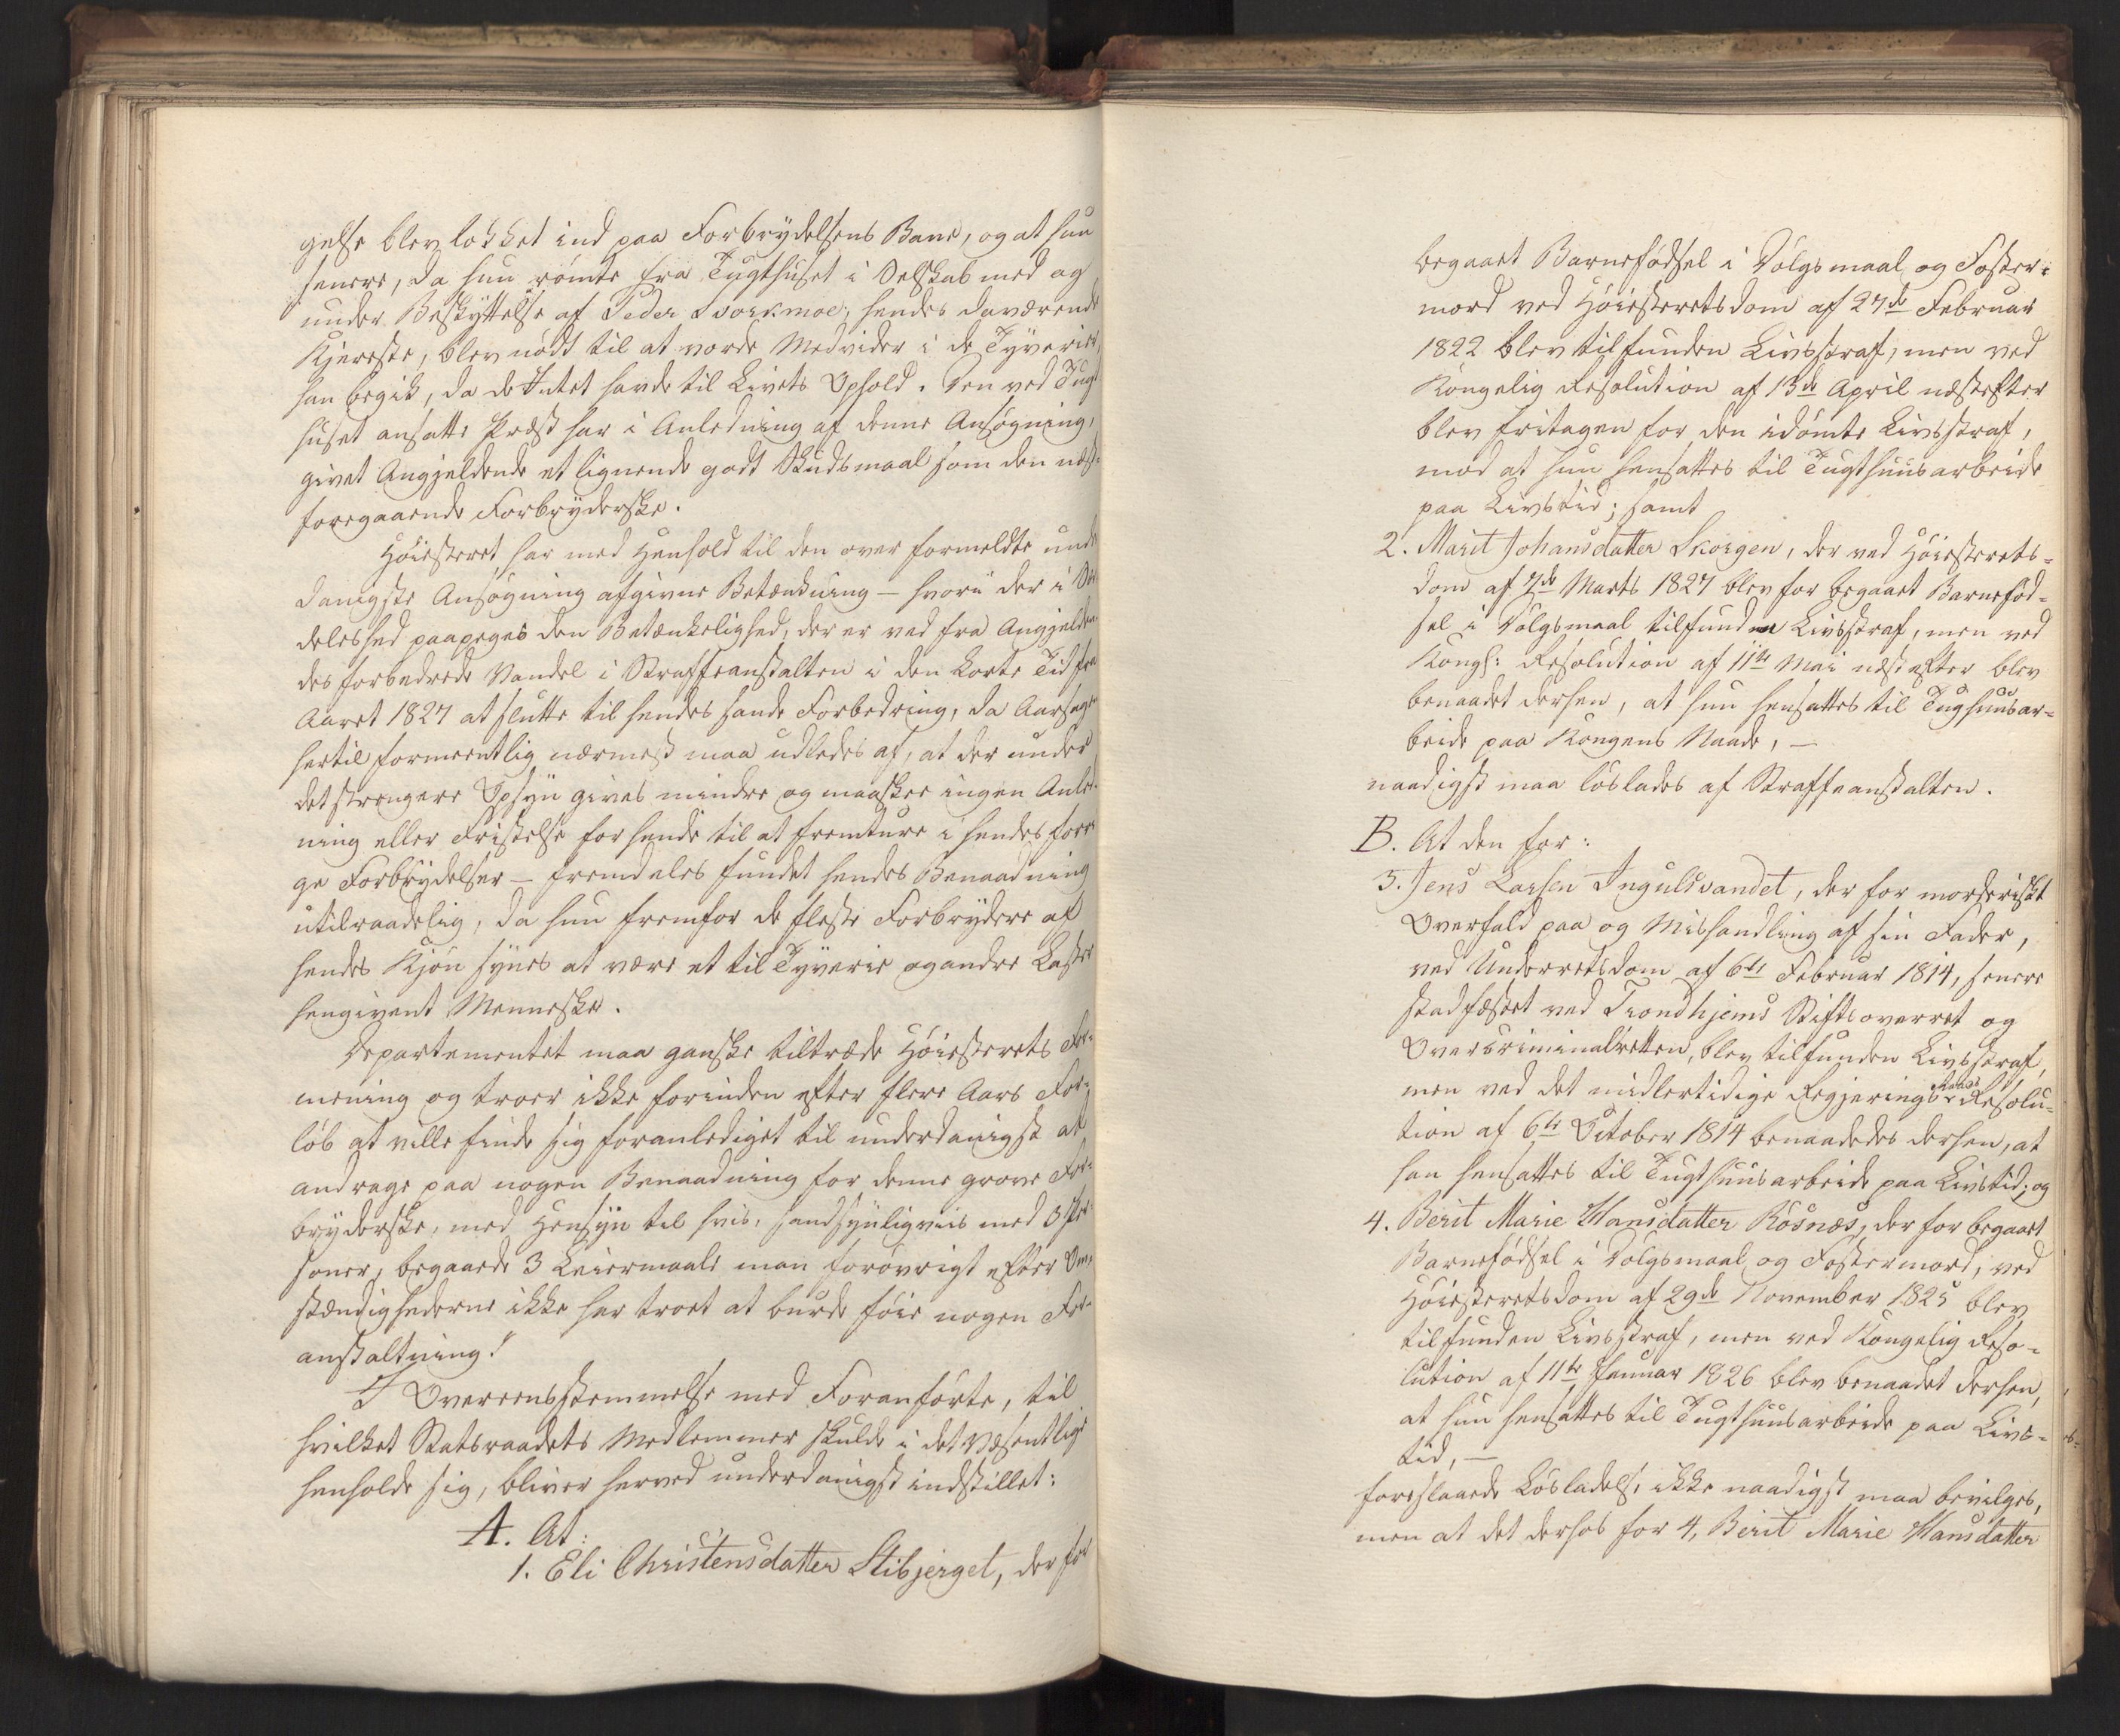 gelse blev lokket ind paa Forbrydelsens Bane, og at hun
senere, da hun römte fra Tugthuset i Selskab med og
under Beskyttelse af Peder Svorkmoe, hendes daværende
Kjereste, blev nödt til at vorde Medvider i de Tyverier,
han begik, da de Intet havde til Livets Ophold. Den ved Tugt
huset ansatte Præst har i Anledning af denne Ansøgning,
givet Angjeldende et lignende godt Skudsmaal som den næst-
foregaaende Forbryderske.
Höiesteret har med Henhold til den over formeldte unde
danigste Ansøgning afgivne Betænkning – hvori der i Sær
deleshed paapeges den Betænkelighed, der er ved fra Angjelden-
des forbedrede Vandel i Straffeanstalten i den korte Tid fra
Aaret 1827 at slutte til hendes sande Forbedring, da Aarsagen
hertil formeentlig nærmest maa udledes af, at der under
det strengere Opsyn gives mindre og maaskee ingen Anled-
ning eller Fristelse for hende til at fremture i hendes forri
ge Forbrydelser – fremdeles fundet hendes Benaadning
utilraadelig, da hun fremfor de fleste Forbrydere af
hendes Kjön synes at være et til Tyverie og andre Laster
hengivent Menneske.
Departementet maa ganske tiltræde Höiesterets For-
mening og troer ikke forinden efter flere Aars For-
löb at ville finde sig foranlediget til underdanigst at
andrage paa nogen Benaadning for denne grove For-
bryderske, med Hensyn til hvis, sandsynligviis med 3 Per
soner, begaaede 3 Leiermaale man forövrigt efter Om-
stændighederne ikke har troet at burde föie nogen For-
anstaltning."
I Overeensstemmelse med Foranförte, til
hvilket Statsraadets Medlemmer skulde i det Væsentlige
henholde sig, bliver herved underdanigst indstillet:
A. At:
1. Eli Christensdatter Stibjerget, der for
begaaet Barnefödsel i Dölgsmaal og Foster-
mord ved Höiesteretsdom af 27de Februar
1822 blev tilfunden Livsstraf, men ved
Kongelig Resolution af 13de April næstefter
blev fritagen for den idömte Livsstraf,
mod at hun hensattes til Tugthuusarbeide
paa Livstid; samt
2. Marit Johansdatter Skorgen, der ved Höiesterets-
dom af 7de Marts 1827 blev for begaaet Barneföd-
sel i Dölgsmaal tilfunden Livsstraf, men ved
Kongl: Resolution af 11te Mai næstefter blev
benaadet derhen, at hun hensattes til Tugthuusar-
beide paa Kongens Naade, –
naadigst maa löslades af Straffeanstalten.
B. At den for:
3. Jens Larsen Inguldsvandet, der for morderiskt
Overfald paa og Mishandling af sin Fader,
ved Underretsdom af 6te Februar 1814, senere
stadfæstet ved Trondhjems Stiftsoverret og
Overcriminalretten, blev tilfunden Livsstraf,
men ved det midlertidige Regjerings-Raads Resolu-
tion af 6te October 1814 benaadedes derhen, at
han hensattes til Tugthuusarbeide paa Livstid; og
4. Berit Marie Hansdatter Rösnæs, der for begaaet
Barnefödsel i Dölgsmaal og Fostermord, ved
Höiesteretsdom af 29de November 1825 blev
tilfunden Livsstraf, men ved Kongelig Reso-
lution af 11te Januar 1826 blev benaadet derhen,
at hun hensattes til Tugthuusarbeide paa Livs-
tid, –
foreslaaede Lösladelse ikke naadigst maa bevilges,
men at det derhos for 4, Berit Marie Hansdatter